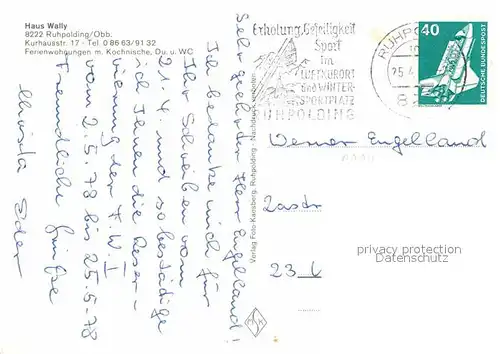 Haus Wally
8222 Ruhpolding/Obb.
Kurhausstr. 17 - Tel 0 86 63/91 32
Ferienwohnungen m. Kochnische, Du. u. WC
Sehr geehrter Herr Engelland,
Ich bedanke mich für
Ihr Schreiben vom
21.4. und so bestätige
ich Ihnen die Reser-
vierung der F.W. I
vom 2.5.78 bis 25.5.78
Freundliche Grüße
Eder
Verlag Foto-Kaosberg, Ruhpolding - Nachdruck verboten
Erholung, Geselligkeit
Sport
im
LUFTKURORT
und WINTER-
SPORTPLATZ
RUHPOLDING
RUHPOLDING
25.4.
82
40
DEUTSCHE BUNDESPOST
Werner Engelland
23
privacy protection
Datenschutz